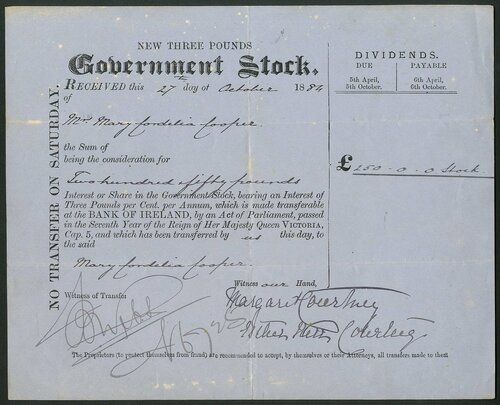 NEW THREE POUNDS
Government Stock.
RECEIVED this 27th day of October 1884
of
Mrs Mary Cordelia Cooper.
the Sum of
being the consideration for
Two hundred & fifty pounds
Interest or Share in the Government Stock, bearing an Interest of
Three Pounds per Cent. per Annum, which is made transferable
at the BANK OF IRELAND, by an Act of Parliament, passed
in the Seventh Year of the Reign of Her Majesty Queen VICTORIA,
Cap. 5, and which has been transferred by us this day, to
the said
Mary Cordelia Cooper.
Witness our Hand,
Witness of Transfer
Margaret Courtney
The Proprietors (to protect themselves from fraud) are recommended to accept, by themselves or their Attorneys, all transfers made to them
NO TRANSFER ON SATURDAY.
DIVIDENDS.
DUE PAYABLE
5th April, 6th April,
5th October. 6th October.
£250-0-0 Stock